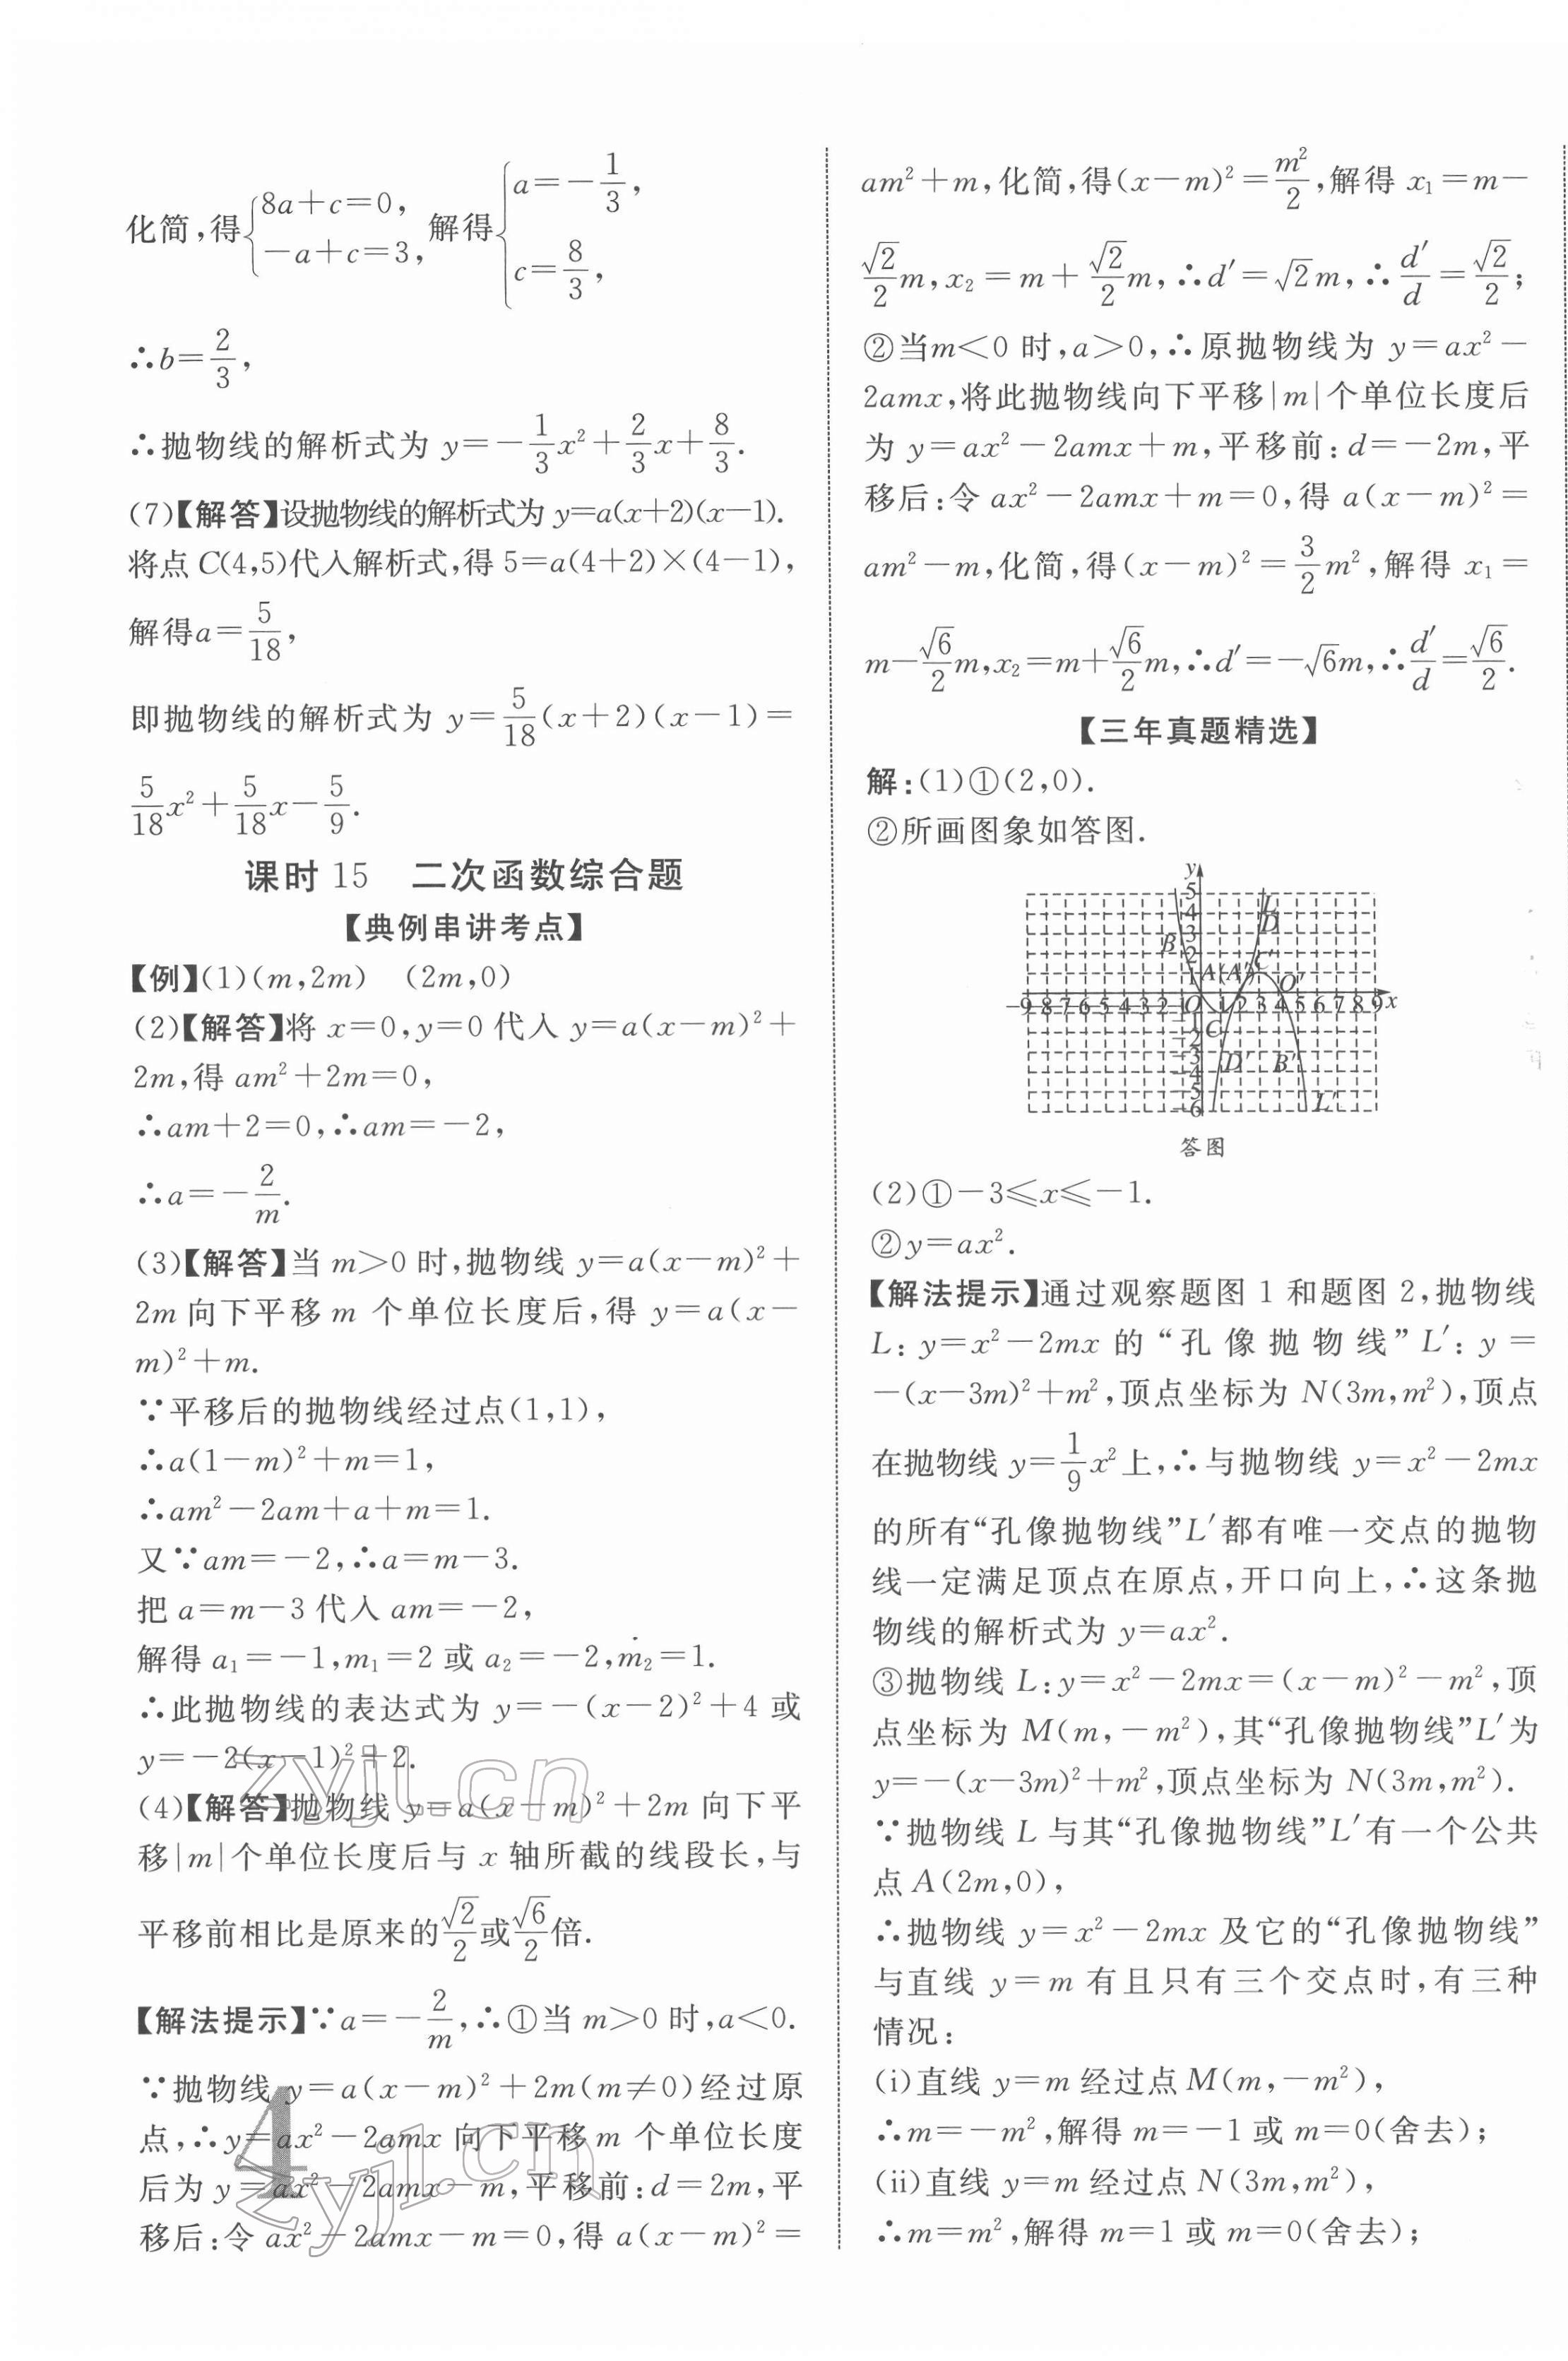 化简,得{8a+c=0, -a+c=3, 解得{a=-1/3, c=8/3,
∴b=2/3,
∴抛物线的解析式为 y=-1/3x²+2/3x+8/3.
(7)【解答】设抛物线的解析式为 y=a(x+2)(x-1).
将点 C(4,5)代入解析式,得 5=a(4+2)×(4-1),
解得a=5/18,
即抛物线的解析式为 y=5/18(x+2)(x-1)=
5/18x²+5/18x-5/9.
课时 15 二次函数综合题
【典例串讲考点】
【例】(1)(m,2m) (2m,0)
(2)【解答】将 x=0,y=0 代入 y=a(x-m)²+
2m,得 am²+2m=0,
∴am+2=0,∴am=-2,
∴a=-2/m.
(3)【解答】当 m>0 时,抛物线 y=a(x-m)²+
2m 向下平移 m 个单位长度后,得 y=a(x-
m)²+m.
∵平移后的抛物线经过点(1,1),
∴a(1-m)²+m=1,
∴am²-2am+a+m=1.
又∵am=-2,∴a=m-3.
把 a=m-3 代入 am=-2,
解得 a₁=-1,m₁=2 或 a₂=-2,m₂=1.
∴此抛物线的表达式为 y=-(x-2)²+4 或
y=-2(x-1)²+2.
(4)【解答】抛物线 y=a(x-m)²+2m 向下平
移|m|个单位长度后与 x 轴所截的线段长,与
平移前相比是原来的√2/2或√6/2倍.
【解法提示】∵a=-2/m,∴①当 m>0 时,a<0.
∵抛物线 y=a(x-m)²+2m(m≠0)经过原
点,∴y=ax²-2amx 向下平移 m 个单位长度
后为 y=ax²-2amx-m,平移前:d=2m,平
移后:令 ax²-2amx-m=0,得 a(x-m)²=
zyjl.cn
4
zyjl.cn
am²+m,化简,得(x-m)²=m²/2,解得 x₁=m-
√2/2m,x₂=m+√2/2m,∴d′=√2m,∴d′/d=√2/2;
②当m<0 时,a>0,∴原抛物线为 y=ax²-
2amx,将此抛物线向下平移|m|个单位长度后
为 y=ax²-2amx+m,平移前:d=-2m,平
移后:令 ax²-2amx+m=0,得 a(x-m)²=
am²-m,化简,得(x-m)²=3/2m²,解得 x₁=
m-√6/2m,x₂=m+√6/2m,∴d′=-√6m,∴d′/d=√6/2.
【三年真题精选】
解:(1)①(2,0).
②所画图象如答图.
y
5
4
3
2
1
L
D
B
A(A′)
C′
O′
-9-8-7-6-5-4-3-2-1O 1 2 3 4 5 6 7 8 9 x
C
-2
-3
-4
-5
-6
D′
B′
L′
答图
(2)①-3≤x≤-1.
②y=ax².
【解法提示】通过观察题图 1 和题图 2,抛物线
L: y=x²-2mx 的“孔像抛物线”L′: y=
-(x-3m)²+m²,顶点坐标为 N(3m,m²),顶点
在抛物线 y=1/9x²上,∴与抛物线 y=x²-2mx
的所有“孔像抛物线”L′都有唯一交点的抛物
线一定满足顶点在原点,开口向上,∴这条抛
物线的解析式为 y=ax².
③抛物线 L:y=x²-2mx=(x-m)²-m²,顶
点坐标为 M(m,-m²),其“孔像抛物线”L′为
y=-(x-3m)²+m²,顶点坐标为 N(3m,m²).
∵抛物线 L 与其“孔像抛物线”L′有一个公共
点 A(2m,0),
∴抛物线 y=x²-2mx 及它的“孔像抛物线”
与直线 y=m 有且只有三个交点时,有三种
情况:
(ⅰ)直线 y=m 经过点 M(m,-m²),
∴m=-m²,解得 m=-1 或 m=0(舍去);
(ⅱ)直线 y=m 经过点 N(3m,m²),
∴m=m²,解得 m=1 或 m=0(舍去);